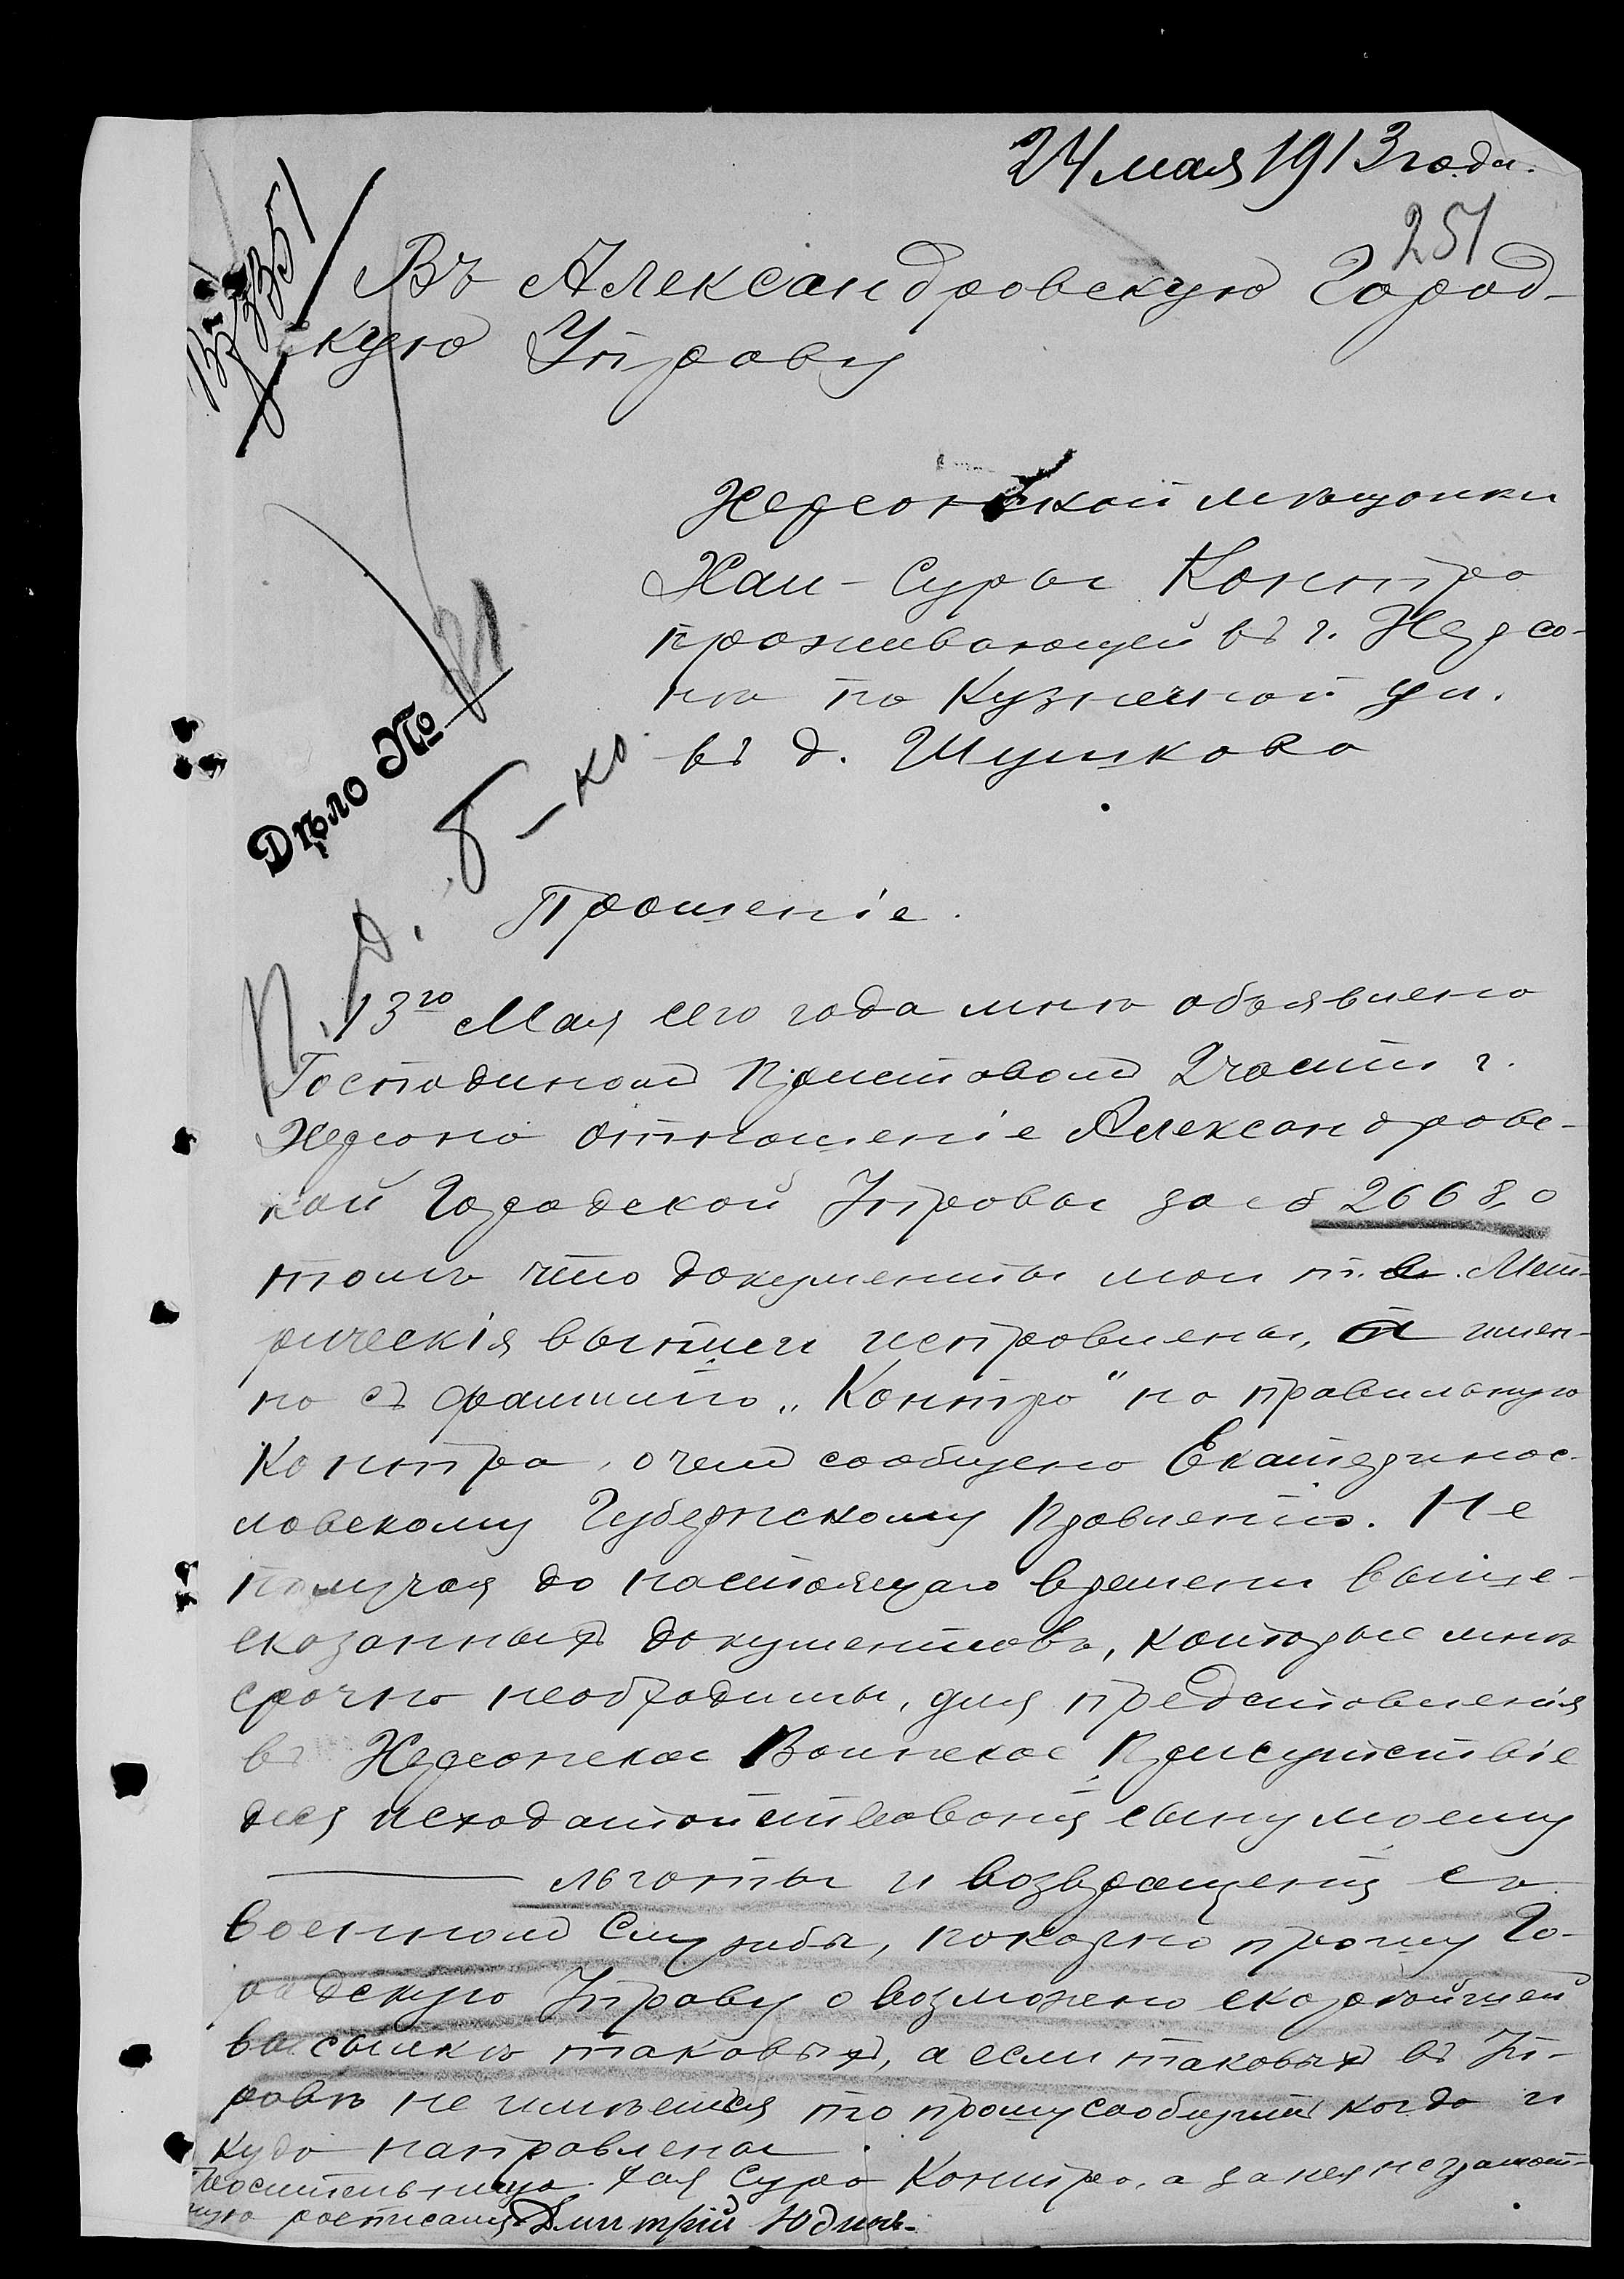 24 мая 1913 года.
251
Вх 3351
Въ Александровскую Город-
скую Управу
Херсонской мѣщанки
Хаи-Суры Контро
проживающей въ г. Херсо-
нѣ по Кузнечной ул.
въ д. Шушкова
Дѣло № 81
Прошеніе.
13го Мая сего года мнѣ объявлено
Господиномъ Приставомъ 2 части г.
Херсона отношеніе Александровс-
кой Городской Управы за № 2668, о
томъ что документы мои т. е. Мет-
рическія выписи исправлены, а имен-
но съ фамиліи „Контро" на правильную
Контра, о чемъ сообщено Екатеринос-
лавскому Губернскому Правленію. Не
получая до настоящаго времени выше-
сказанныхъ документовъ, которые мнѣ
срочно необходимы, для представленія
въ Херсонское Воинское Присутствіе
для исходатойствованія сыну моему
льготы и возвращенія съ
военной службы, покорно прошу Го-
родскую Управу о возможно скорѣйшей
высылкѣ таковыхъ, а если таковыхъ въ Уп-
равѣ не имѣется то прошу сообщить когда и
куда направлены.
Просительница Хая Сура Контро, а за нея неграмот-
ную росписался Дмитрій Юдинъ.